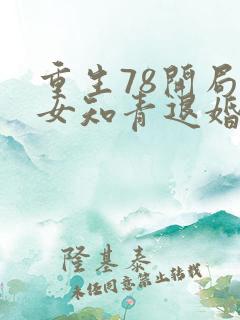 重生78开局
女知青退婚
隆基泰
未经同意禁止转载